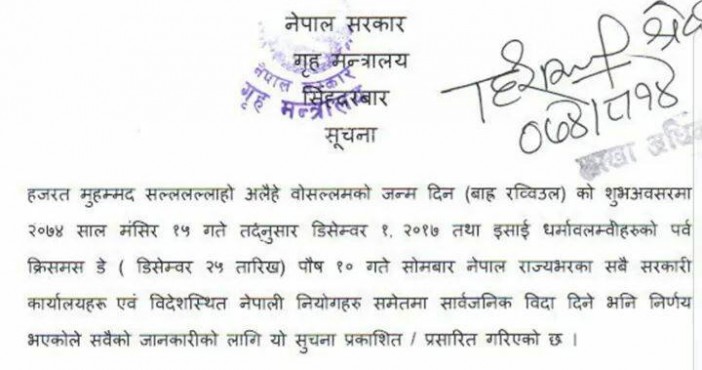 नेपाल सरकार
गृह मन्त्रालय
नेपाल सरकार
गृह मन्त्रालय
सिंहदरबार
सूचना
०७४।८।१४
शाखा अधिकृत
हजरत मुहम्मद सल्लल्लाहो अलैहे वोसल्लमको जन्म दिन (बाह्र रव्विउल) को शुभअवसरमा
२०७४ साल मंसिर १५ गते तर्दनुसार डिसेम्वर १, २०१७ तथा इसाई धर्मावलम्वीहरुको पर्व
क्रिसमस डे ( डिसेम्वर २५ तारिख) पौष १० गते सोमबार नेपाल राज्यभरका सबै सरकारी
कार्यालयहरू एवं विदेशस्थित नेपाली नियोगहरु समेतमा सार्वजनिक विदा दिने भनि निर्णय
भएकोले सवैको जानकारीको लागि यो सुचना प्रकाशित / प्रसारित गरिएको छ ।